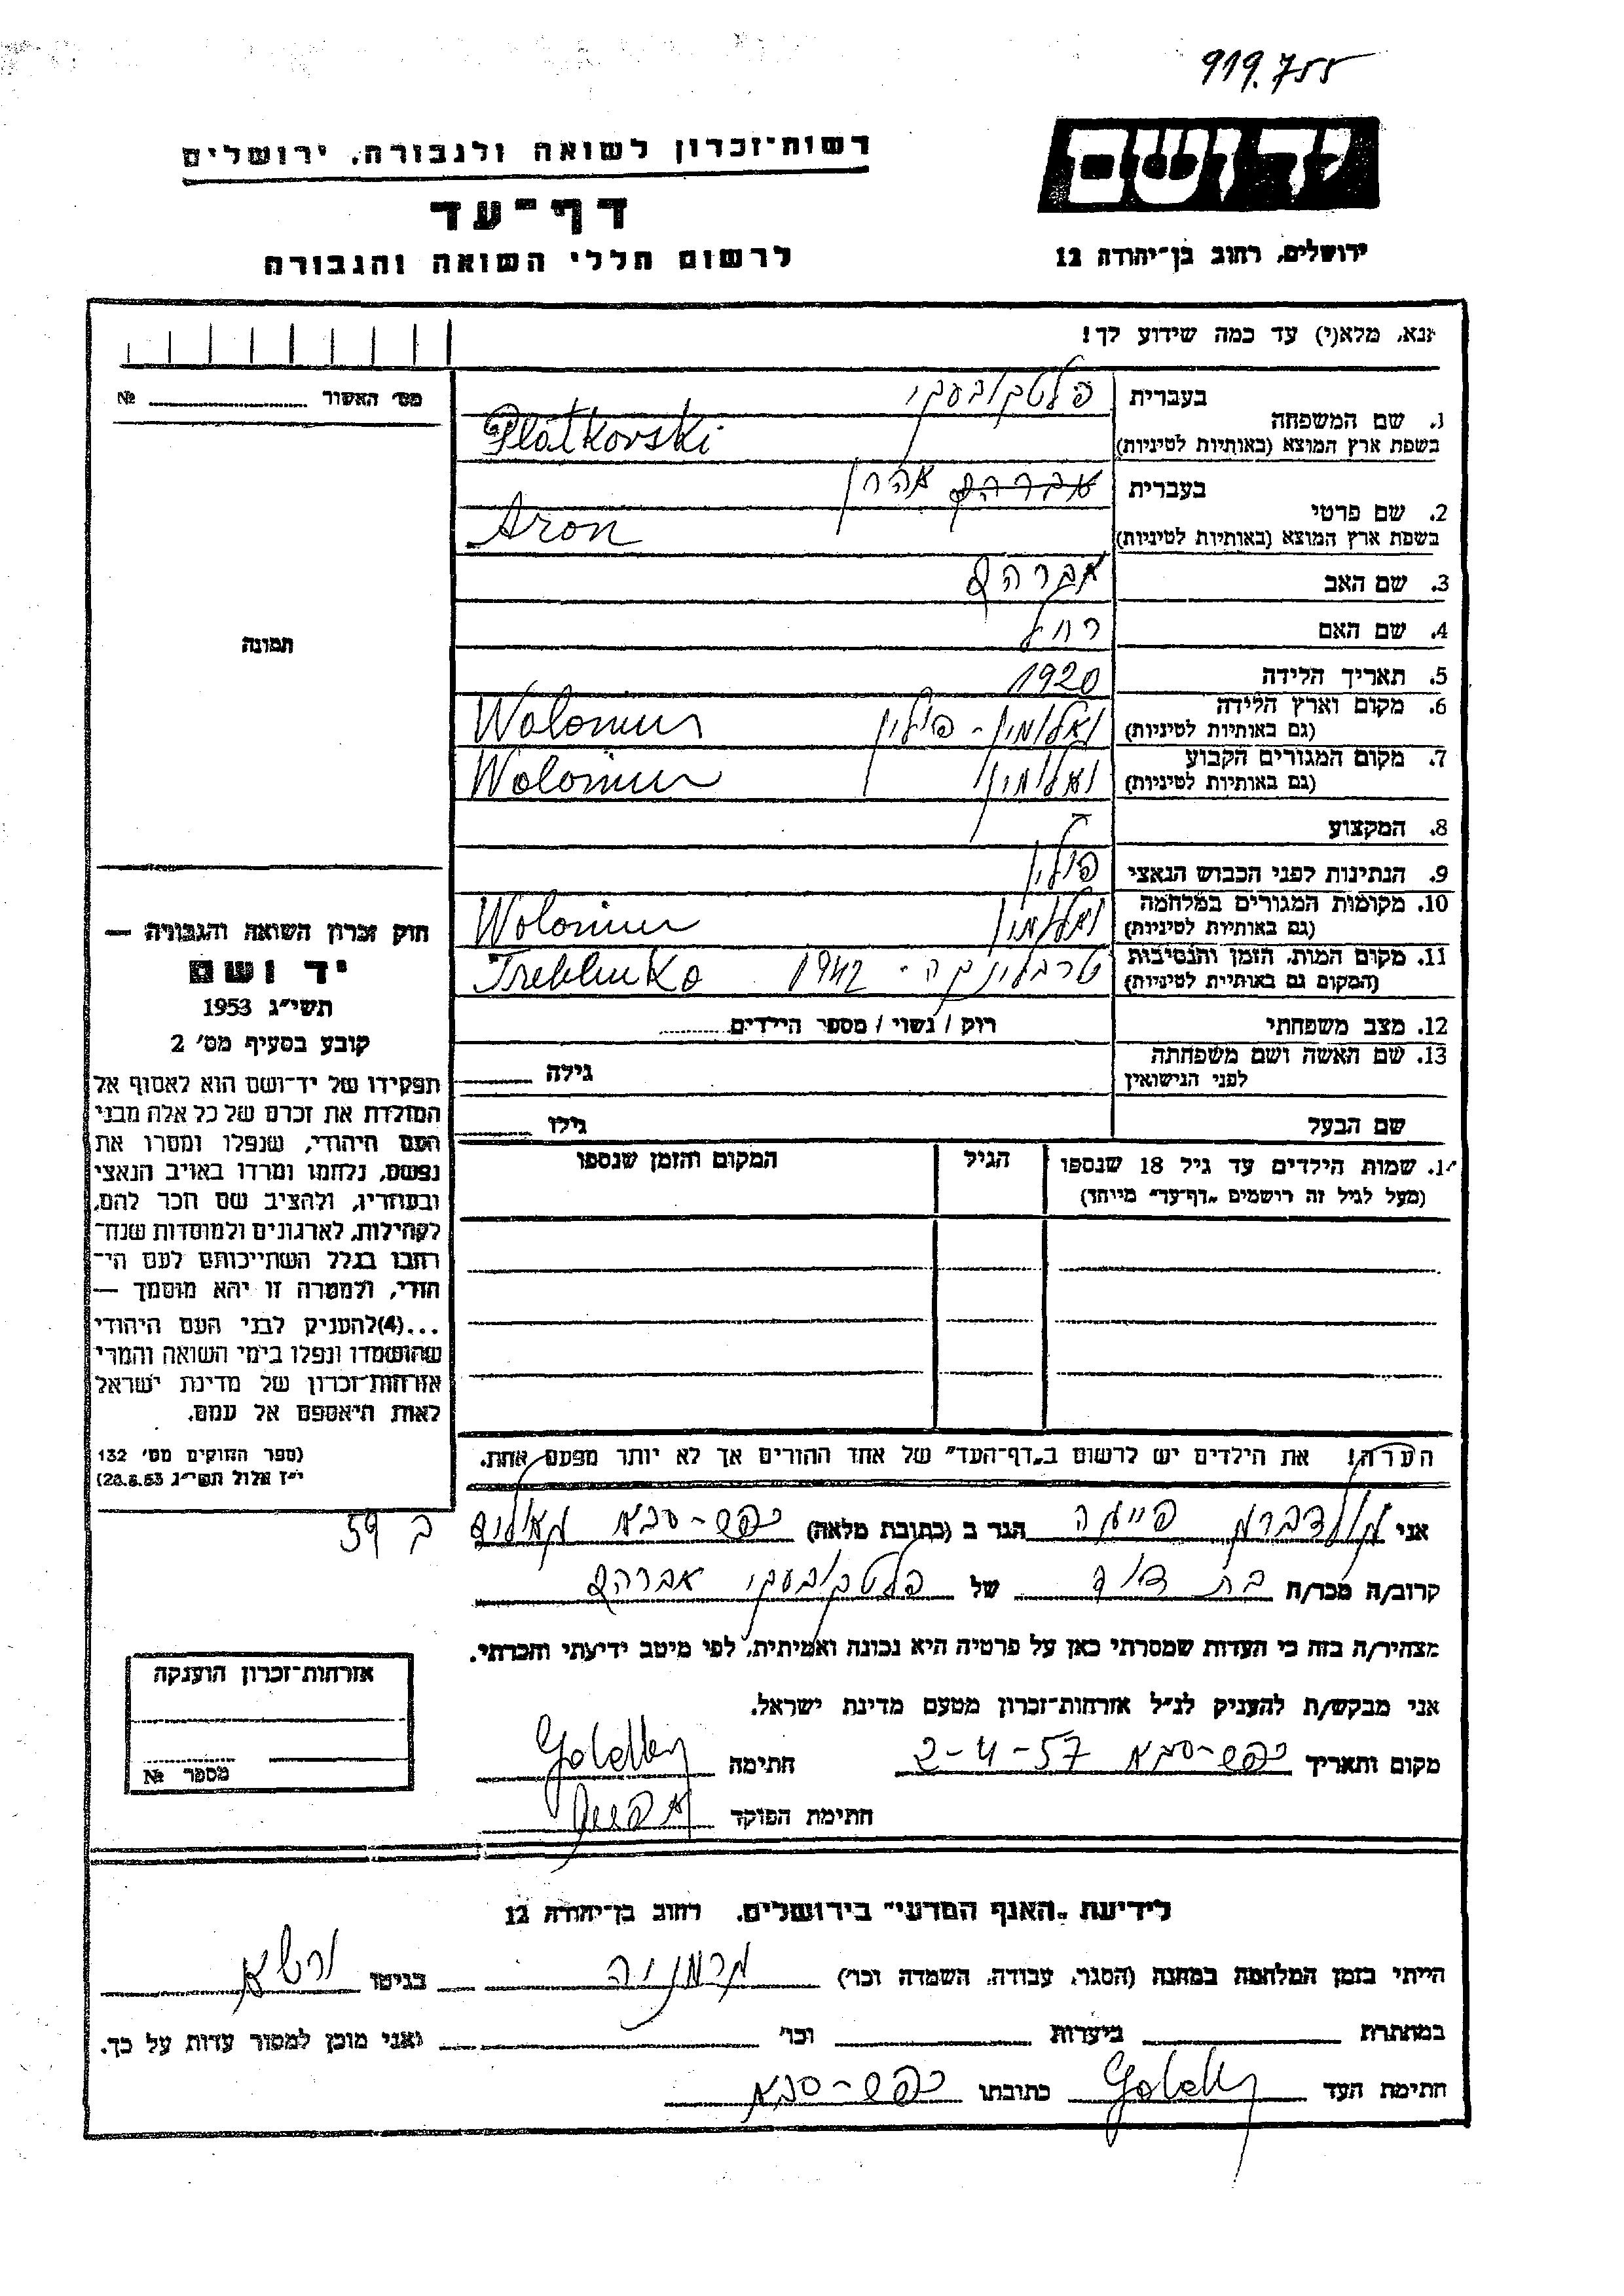 919.755
יד ושם
רשות־זכרון לשואה ולגבורה, ירושלים
דף־עד
לרשום חללי השואה והגבורה
ירושלים, רחוב בן־יהודה 12
אנא, מלא(י) עד כמה שידוע לך!
מס׳ האשור №
1. שם המשפחה
בעברית פלטקובסקי
בשפת ארץ המוצא (באותיות לטיניות) Platkovski
2. שם פרטי
בעברית אברהם אהרן
בשפת ארץ המוצא (באותיות לטיניות) Aron
3. שם האב אברהם
4. שם האם רחל
תמונה
5. תאריך הלידה 1920
6. מקום וארץ הלידה
(גם באותיות לטיניות) ואלומין - פולין Wolomin
7. מקום המגורים הקבוע
(גם באותיות לטיניות) ואלומין Wolomin
8. המקצוע
9. הנתינות לפני הכבוש הנאצי פולין
10. מקומות המגורים במלחמה
(גם באותיות לטיניות) ואלומין Wolomin
11. מקום המות, הזמן והנסיבות
(המקום גם באותיות לטיניות) טרבלינקה - 1942 Treblinka
12. מצב משפחתי רוק / נשוי / מספר הילדים
13. שם האשה ושם משפחתה
לפני הנישואין גילה
שם הבעל גילו
14. שמות הילדים עד גיל 18 שנספו הגיל המקום והזמן שנספו
(מעל לגיל זה רושמים „דף־עד״ מייחד)
חוק זכרון השואה והגבורה —
יד ושם
תשי״ג 1953
קובע בסעיף מס׳ 2
תפקידו של יד־ושם הוא לאסוף אל
המולדת את זכרם של כל אלה מבני
העם היהודי, שנפלו ומסרו את
נפשם, נלחמו ומרדו באויב הנאצי
ובעוזריו, ולהציב שם וזכר להם,
לקהילות, לארגונים ולמוסדות שנח־
רבו בגלל השתייכותם לעם הי־
הודי, ולמטרה זו יהא מוסמך —
...(4)להעניק לבני העם היהודי
שהושמדו ונפלו בימי השואה והמרי
אזרחות־זכרון של מדינת ישראל
לאות היאספם אל עמם.
(ספר החוקים מס׳ 132
י״ז אלול תשי״ג 28.8.53)
הערה! את הילדים יש לרשום ב„דף־העד״ של אחד ההורים אך לא יותר מפעם אחת.
אני גולדברג הגר ב (כתובת מלאה) כפר-סבא ב 59
קרוב/ה מכר/ה בת דוד של פלטקובסקי אברהם
מצהיר/ה בזה כי העדות שמסרתי כאן על פרטיה היא נכונה ואמיתית, לפי מיטב ידיעתי והכרתי.
אני מבקש/ת להעניק לנ״ל אזרחות־זכרון מטעם מדינת ישראל.
מקום ותאריך כפר-סבא 2-4-57 חתימה
חתימת הפוקד
אזרחות־זכרון הוענקה
מספר №
לידיעת „האגף המדעי״ בירושלים, רחוב בן־יהודה 12
הייתי בזמן המלחמה במחנה (הסגר, עבודה, השמדה וכו׳) גרמניה בגיטו ורשא
במחתרת ביערות וכו׳ ואני מוכן למסור עדות על כך.
חתימת העד כתובתו כפר-סבא